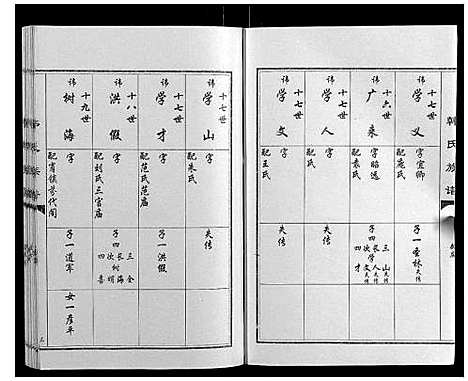 韩氏族谱
十七世
讳 学义
字宪卿
配庞氏
子一 圣林失传
十六世
讳 广来
字昭远
配袁氏
子四 长学文失传
次人失传
三山失传
四才
十七世
讳 学人
字
配 氏
失传
十七世
讳 学文
字
配王氏
失传
十七世
讳 学山
字
配朱氏
失传
十七世
讳 学才
字
配范氏范庙
子一洪假
十八世
讳 洪假
字
配刘氏三官庙
子四 长树海
次树
三金
四喜
十九世
讳 树海
字
子一道军
女一彦平